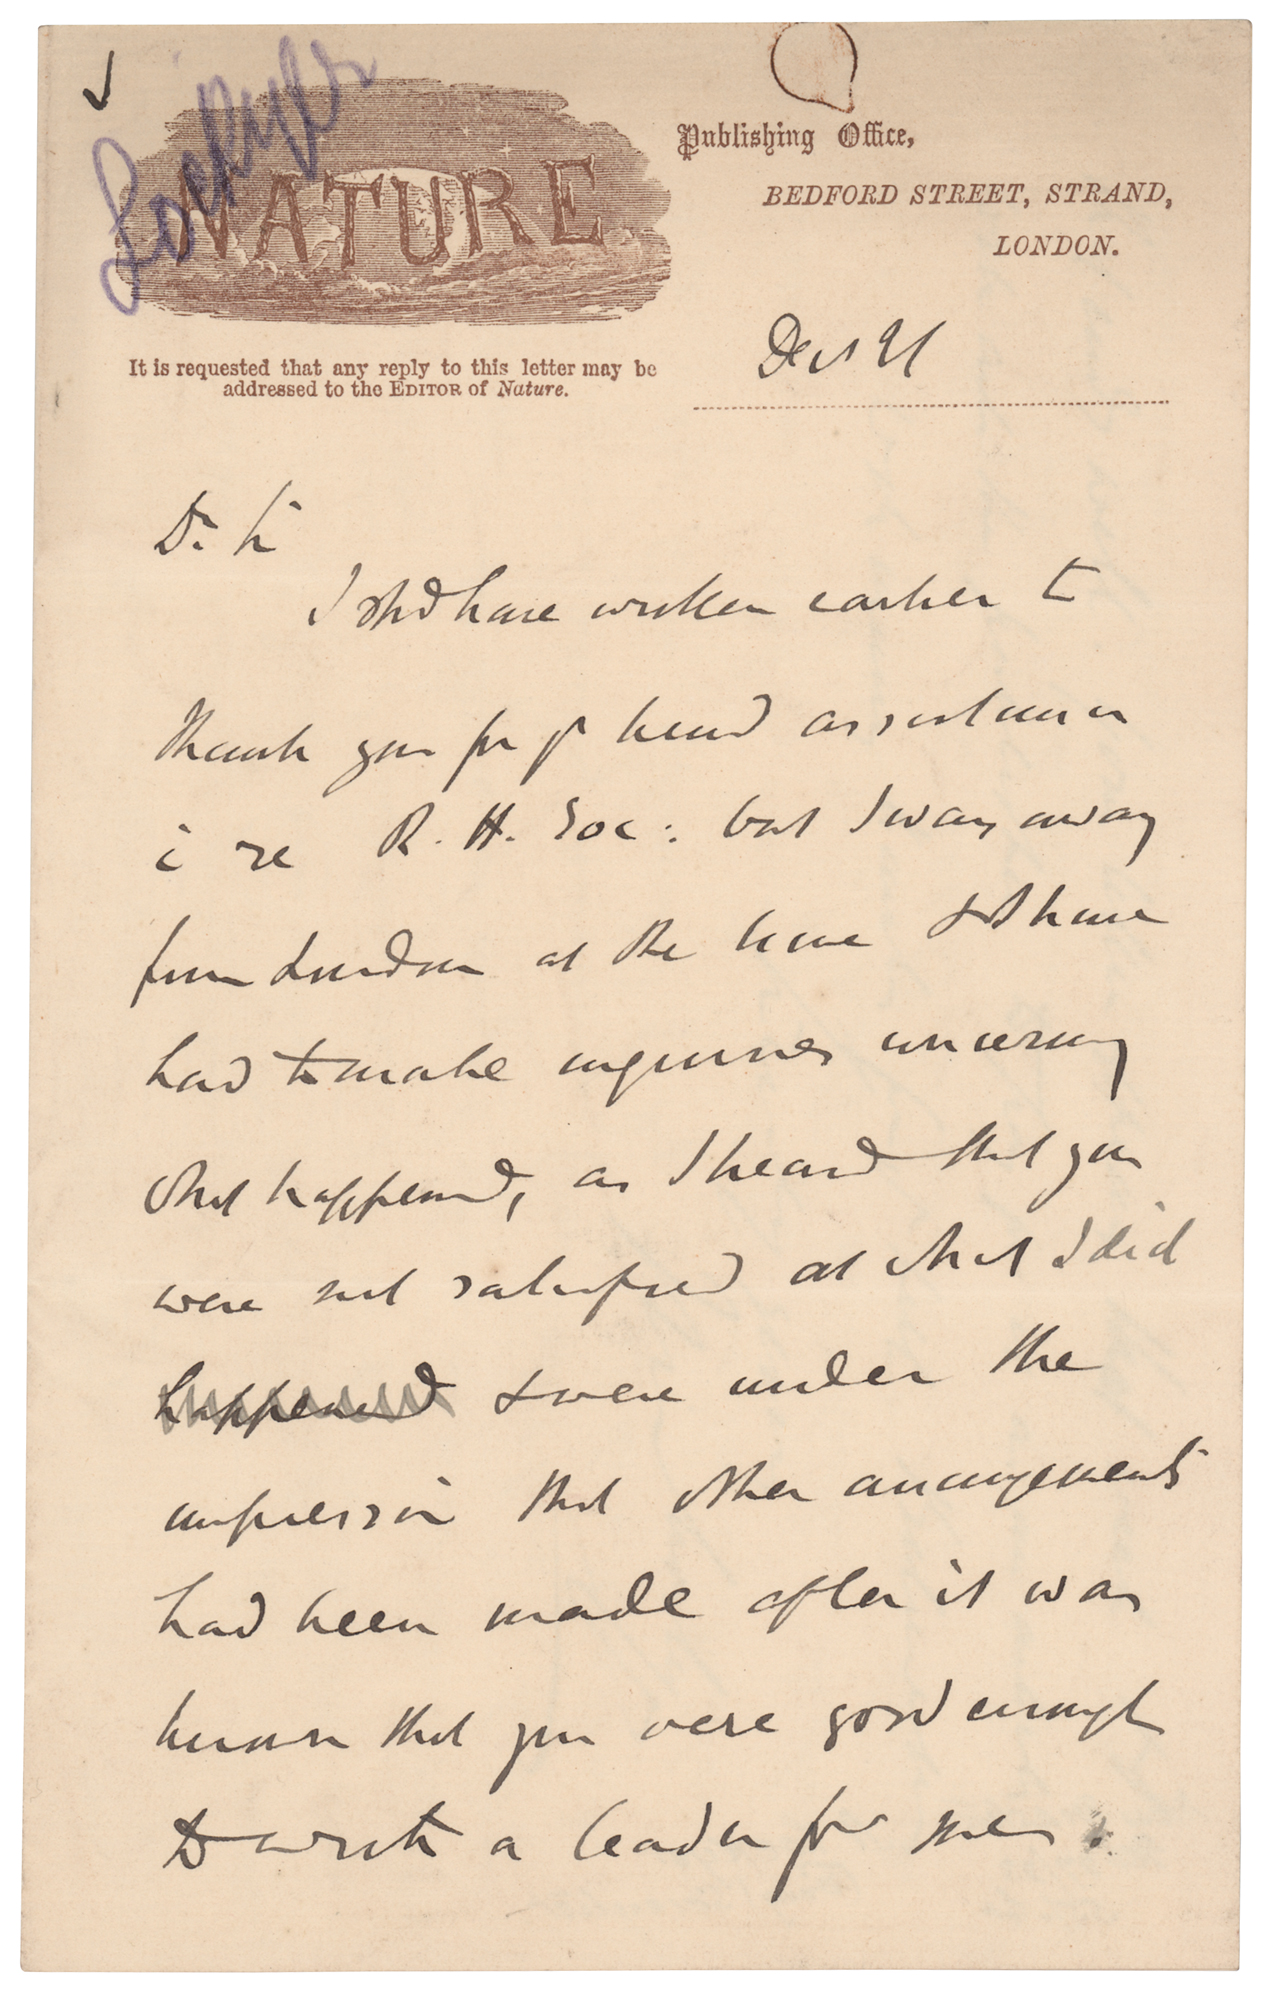 Lockyer
NATURE
Publishing Office,
BEDFORD STREET, STRAND,
LONDON.
It is requested that any reply to this letter may be
addressed to the EDITOR of Nature.
Dec 21
Dr. Sir
I shd have written earlier to
thank you for yr kind assistance
i re R. H. Soc: but I was away
from London at the time & I have
had to make inquiries concerning
what happened, as I heard that you
were not satisfied at what I did
happened & were under the
impression that other arrangements
had been made after it was
known that you were good enough
to write a leader for me.